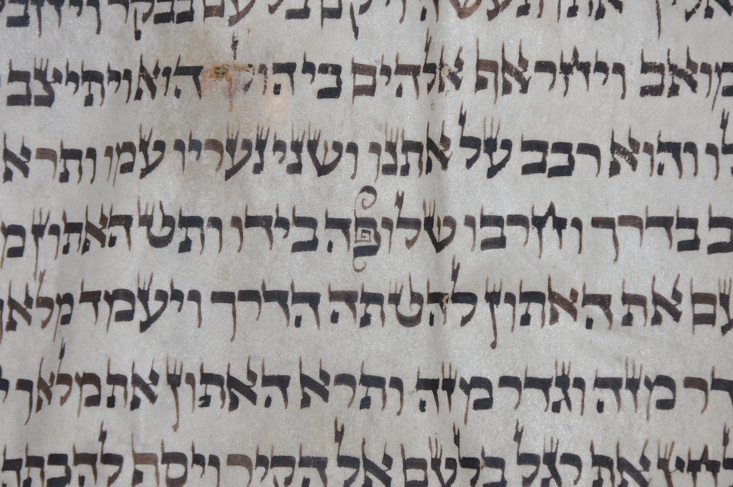 אליך אתו תעשה ויקם בלעם בבקר
מואב ויחר אף אלהים כי הולך הוא ויתיצב
לו והוא רכב על אתנו ושני נעריו עמו ותרא
בדרך וחרבו שלופה בידו ותט האתון
את האתון להטתה הדרך ויעמד מלאך
מזה וגדר מזה ותרא האתון את מלאך
את רגל בלעם אל הקיר ויסף להכתה